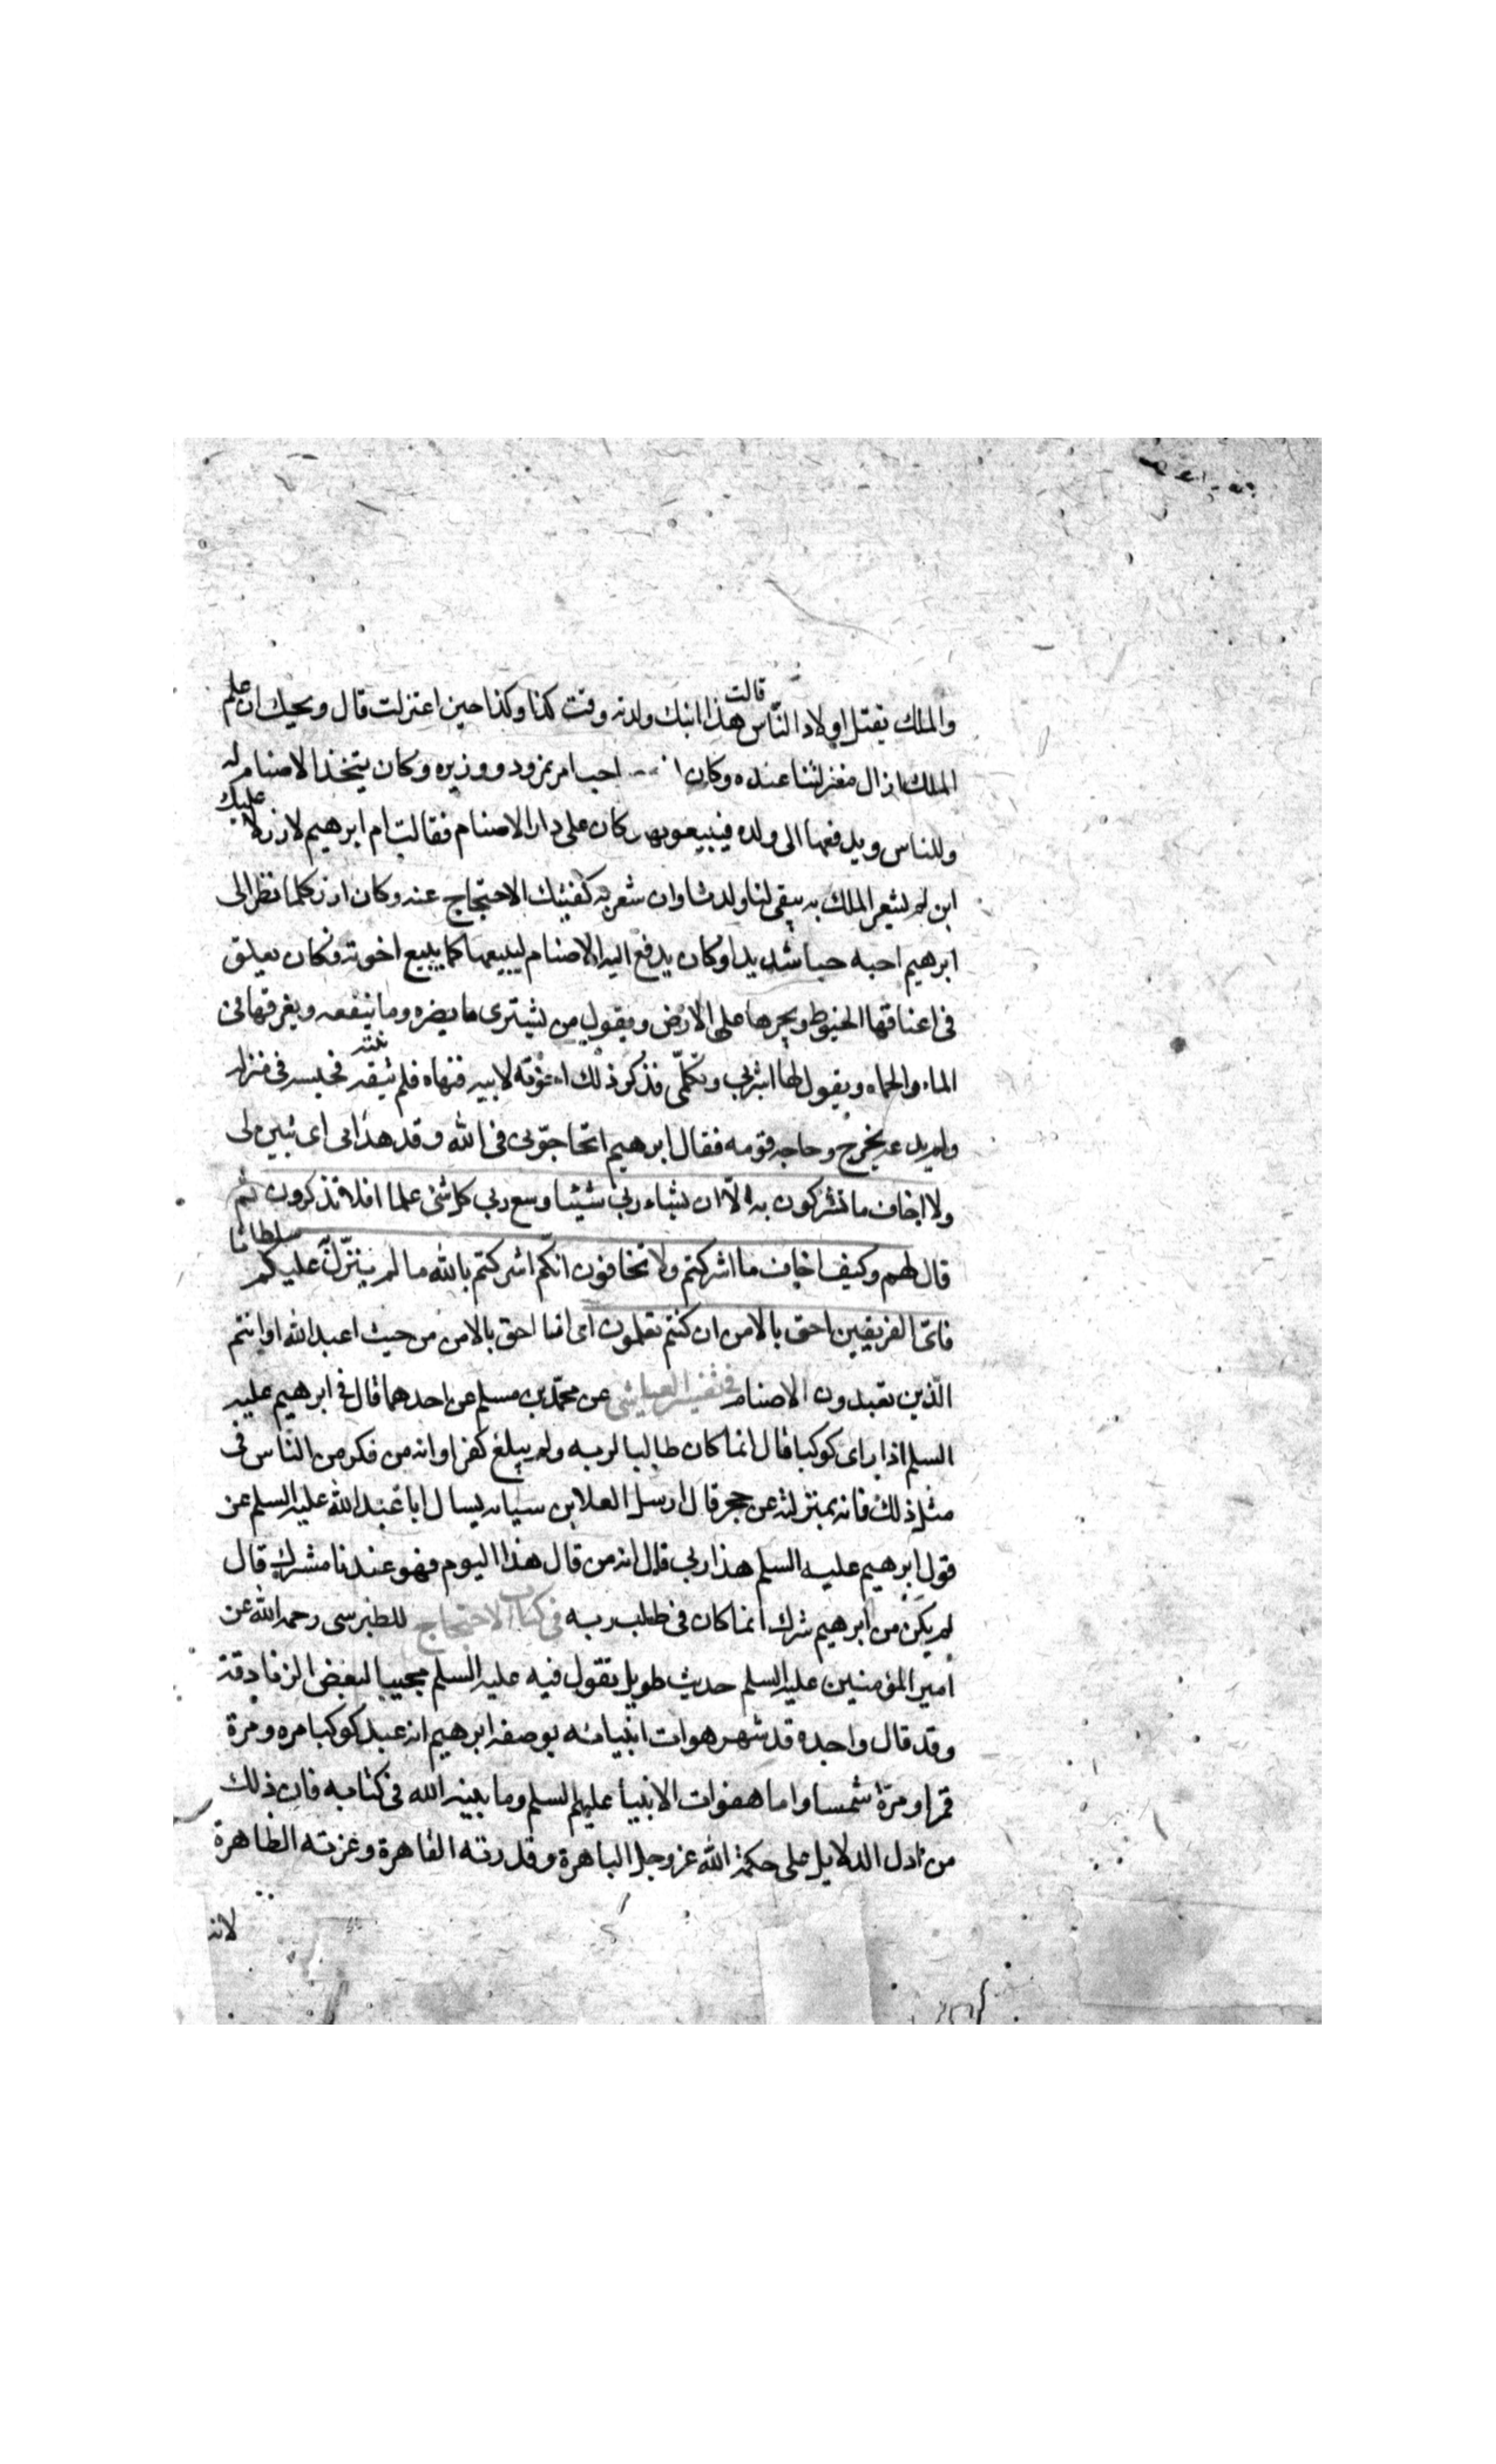 والملك يقتل اولاد الناس قالت هذا ابنك ولدته وقت كذا وكذا حين اعتزلت قال ويحك ان علم
الملك زال منزلتنا عنده وكان صاحب امر نمرود ووزيره وكان يتخذ الاصنام له
وللناس ويدفعها الى ولده فيبيعونها وكان على دار الاصنام فقالت ام ابرهيم لازر لا عليك
ان لم يشعر الملك به يبقى لنا ولدنا وان شعر به كفيتك الاحتجاج عنه وكان ازر كلما نظر الى
ابرهيم احبه حبا شديدا وكان يدفع اليه الاصنام ليبيعها كما يبيع اخوته فكان يعلق
فى اعناقها الخيوط ويجرها على الارض ويقول من يشترى ما يضره وما ينفعه ويغرقها فى
الماء والحماه ويقول لها اشربى وتكلمى فذكر ذلك اخوته لابيه فنهاه فلم ينته فحبسه فى منزله
ولم يدعه يخرج وحاجه قومه فقال ابرهيم اتحاجونى فى الله وقد هدانى اى تبين لى
ولا اخاف ما تشركون به الّا ان يشاء ربى شيئا وسع ربى كل شئ علما افلا تذكرون ثم
قال لهم وكيف اخاف ما اشركتم ولا تخافون انكم اشركتم بالله ما لم ينزل عليكم سلطانا
فاىّ الفريقين احق بالامن ان كنتم تعلمون اى انا احق بالامن من حيث اعبد الله او انتم
الّذين تعبدون الاصنام فى تفسير العياشى عن محمّد بن مسلم عن احدهما قال فى ابرهيم عليه
السلم اذا راى كوكبا قال انما كان طالبا لربه ولم يبلغ كفرا وانه من فكر من الناس فى
مثل ذلك فانه بمنزلته عن حجر قال ارسل العلا بن سيابه يسال ابا عبد الله عليه السلم عن
قول ابرهيم عليه السلم هذا ربى قال انه من قال هذا اليوم فهو عندنا مشرك قال
لم يكن من ابرهيم شرك انما كان فى طلب ربه فى كتاب الاحتجاج للطبرسى رحمه الله عن
امير المؤمنين عليه السلم حديث طويل يقول فيه عليه السلم مجيبا لبعض الزنادقة
وقد قال واجده قد شهر هوات انبيائه بوصفه ابرهيم انه عبد كوكبا مره ومرة
قمرا ومرة شمسا واما هفوات الانبيا عليهم السلم وما بينه الله فى كتابه فان ذلك
من ادل الدلايل على حكمة الله عز وجل الباهرة وقدرته القاهرة وعزته الظاهرة
لانه